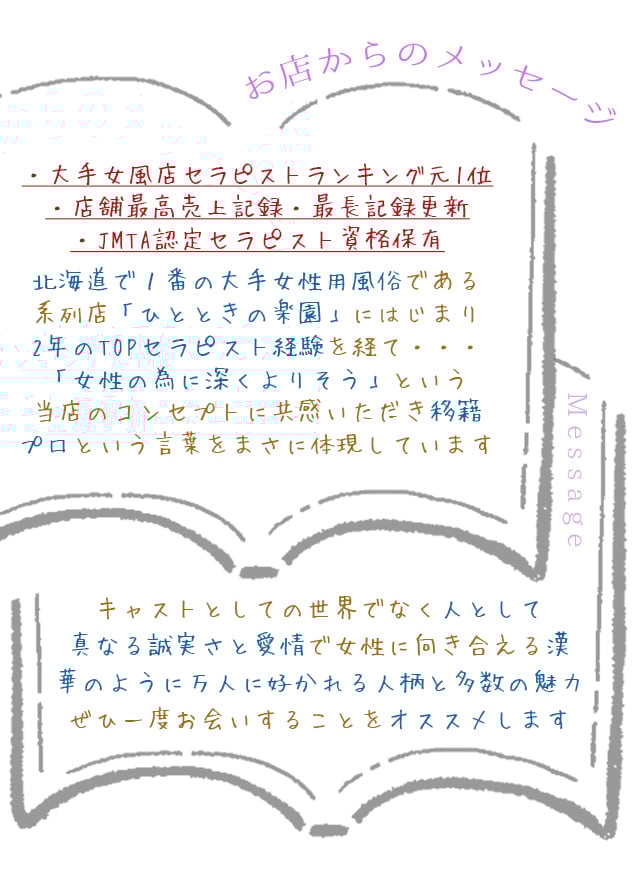 お店からのメッセージ
・大手女風店セラピストランキング元1位
・店舗最高売上記録・最長記録更新
・JMTA認定セラピスト資格保有
北海道で１番の大手女性用風俗である
系列店「ひとときの楽園」にはじまり
2年のTOPセラピスト経験を経て・・・
「女性の為に深くよりそう」という
当店のコンセプトに共感いただき移籍
プロという言葉をまさに体現しています
Message
キャストとしての世界でなく人として
真なる誠実さと愛情で女性に向き合える漢
華のように万人に好かれる人柄と多数の魅力
ぜひ一度お会いすることをオススメします